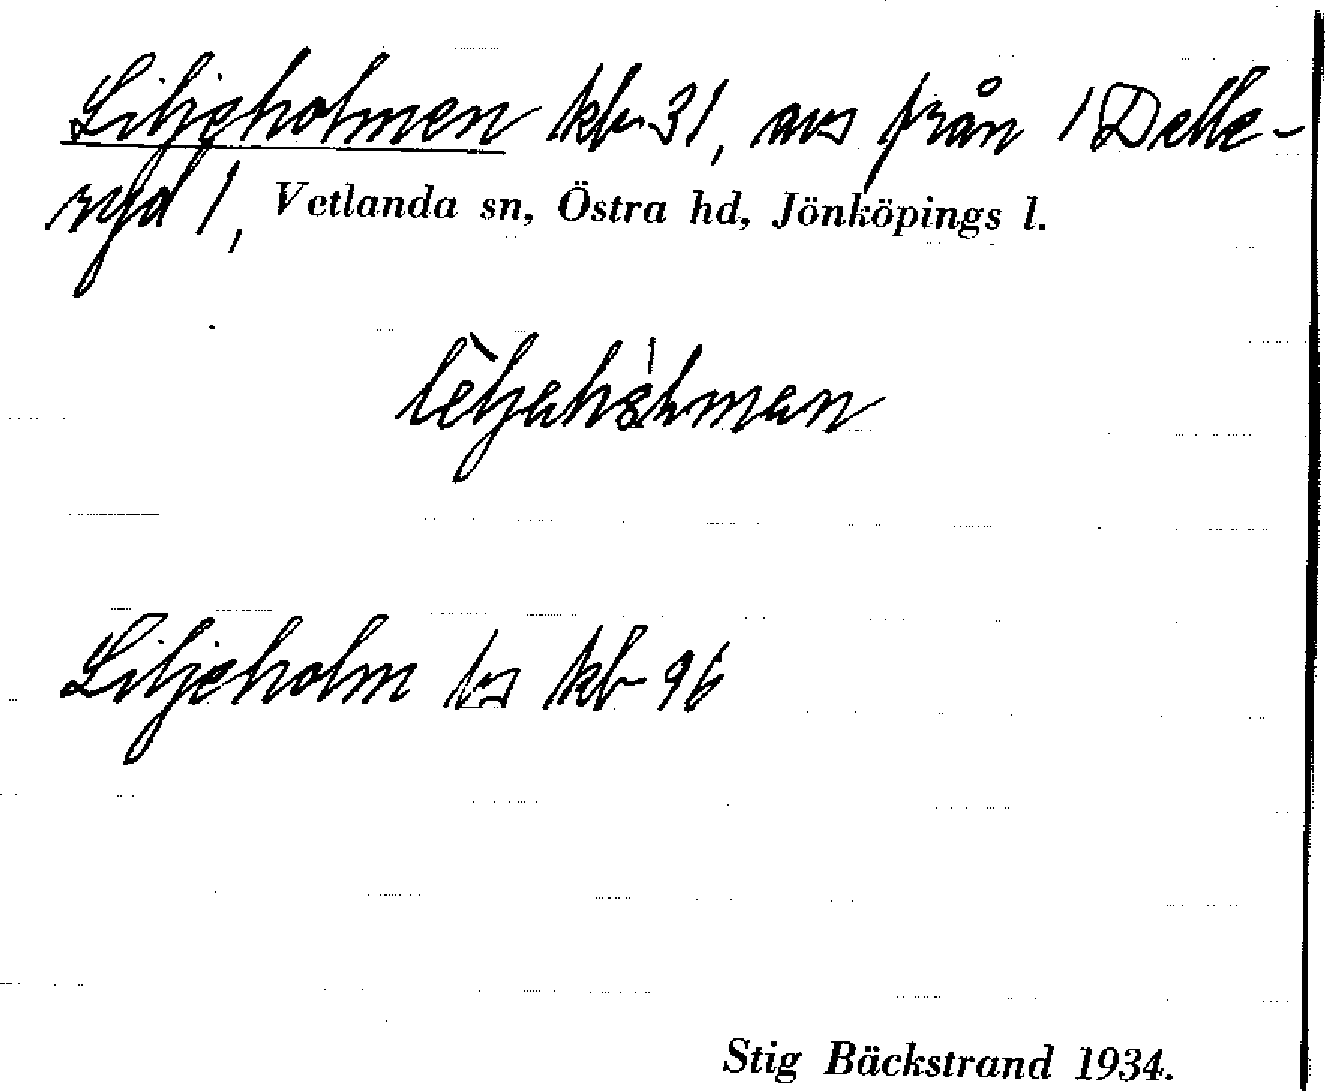 Liljeholmen kb 31, avs från 1 Delle-
ryd 1, Vetlanda sn, Östra hd, Jönköpings l.
Liljeholm bs kb 96
Stig Bäckstrand 1934.